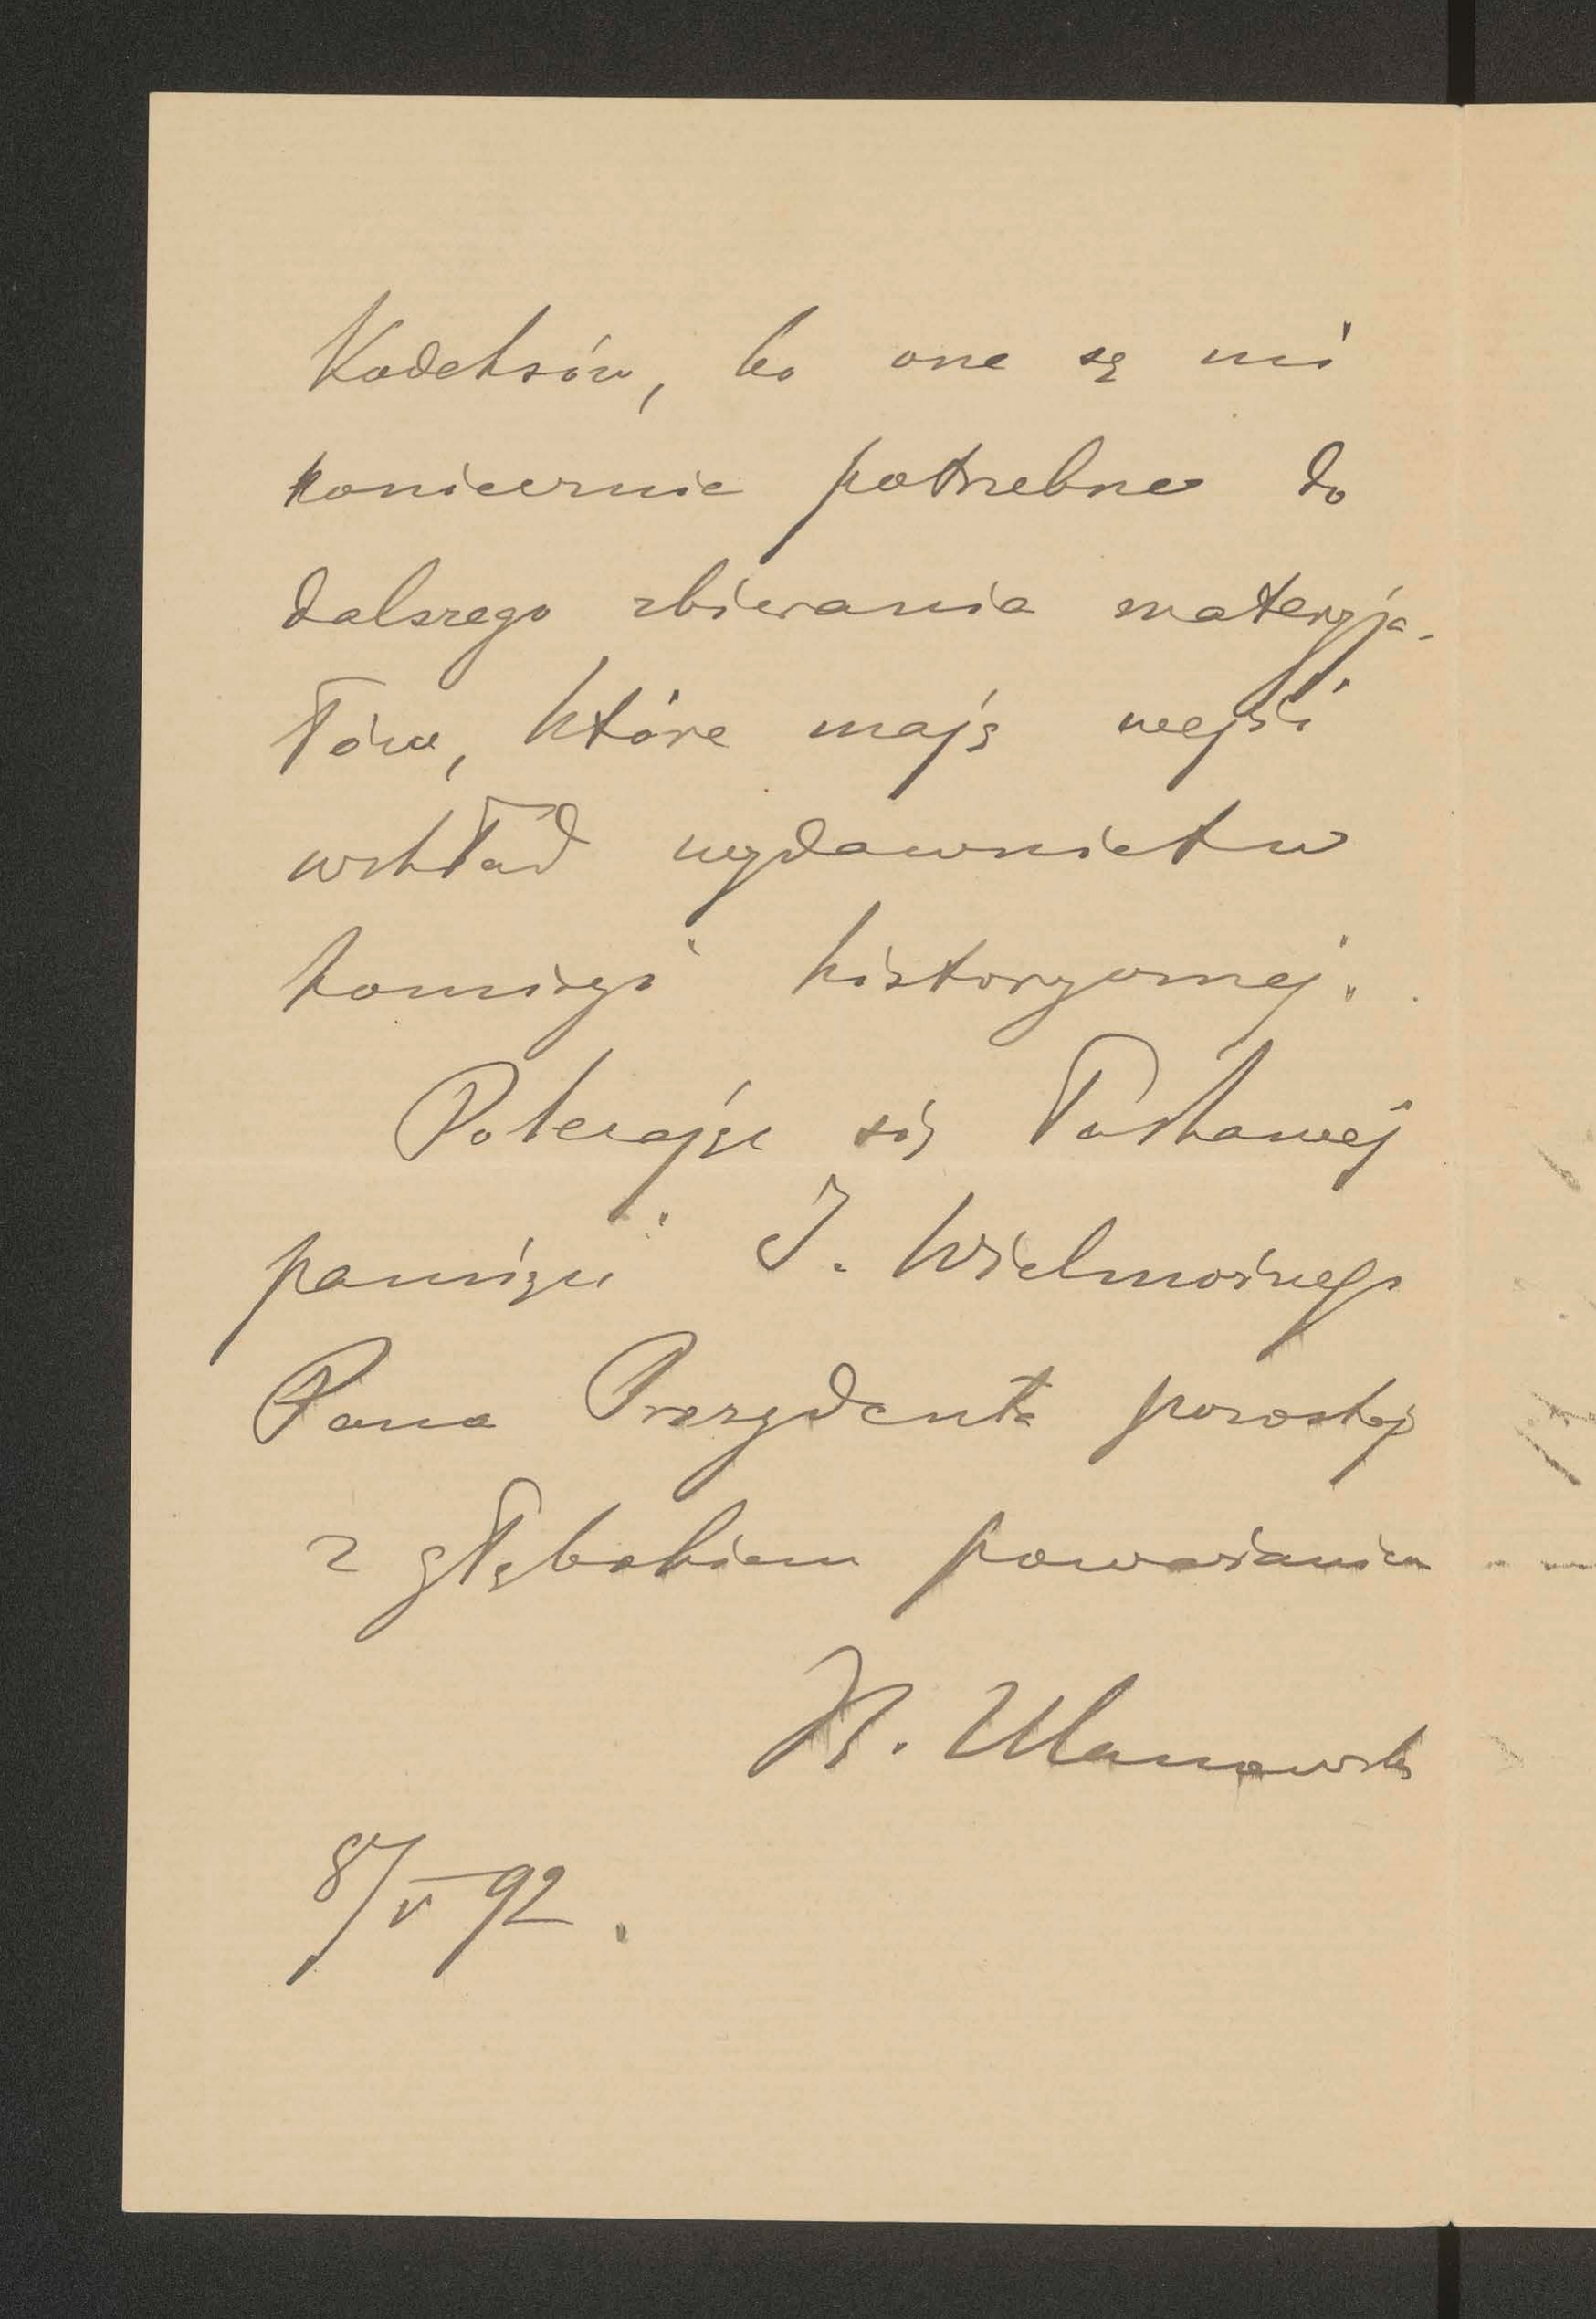 Kodeksów, bo one są mi
koniecznie potrzebne do
dalszego zbierania materyja-
łów, które mają wejść
wskład wydawnictw
komisyi historycznej.
Polecając się łaskawej
pamięci J. Wielmożnego
Pana Prezydenta pozostaję
z głębokiem poważaniem
B. Ulanowski
8/V 92.